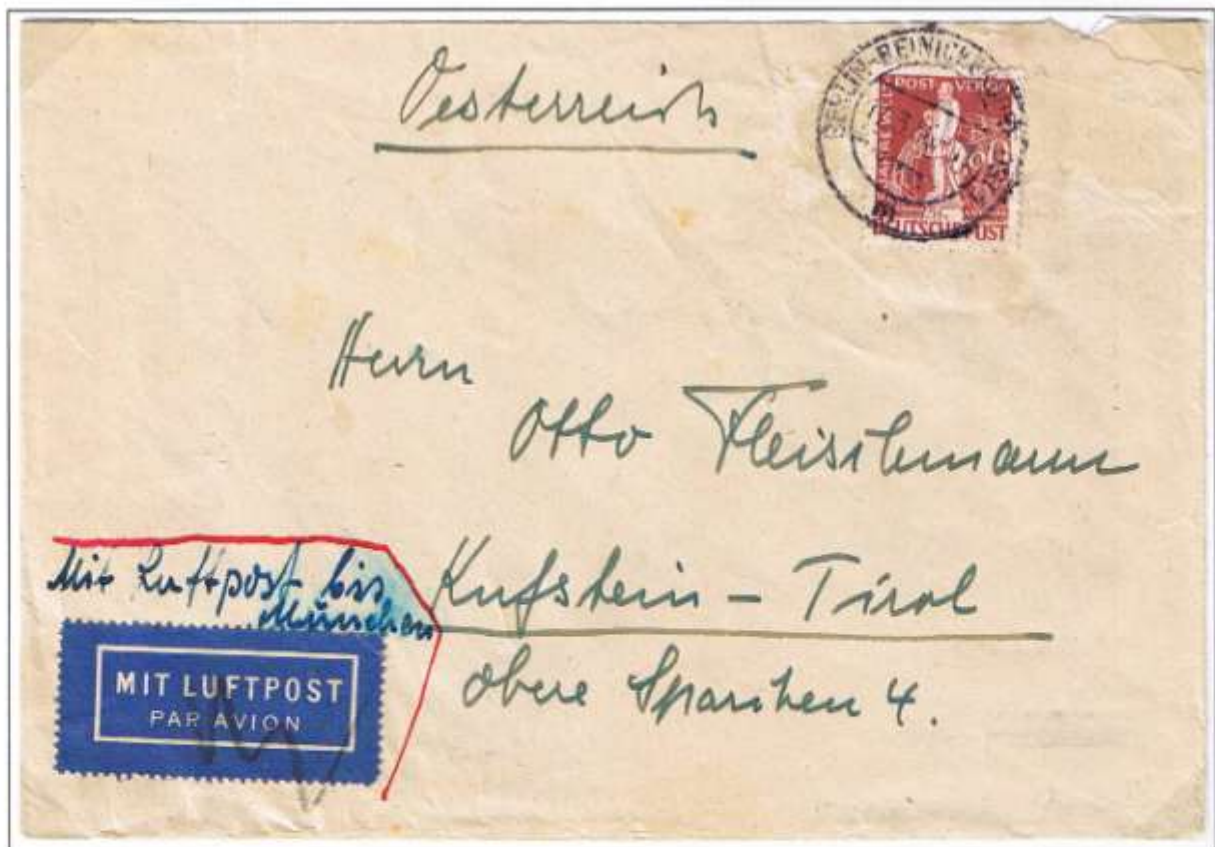 Oesterreich
BERLIN-REINICKENDORF
75 JAHRE WELTPOSTVEREIN
60
DEUTSCHE POST
Herrn
Otto Fleischmann
Kufstein - Tirol
obere Sparchen 4.
Mit Luftpost bis
München
MIT LUFTPOST
PAR AVION